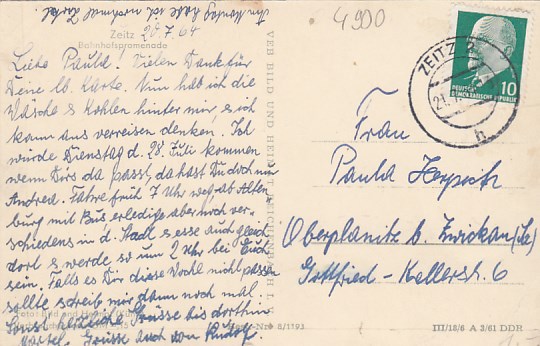 Am Montag habe ich nochmal
4900
Zeitz
20.7.64
Bahnhofspromenade
Liebe Paula! Vielen Dank für
Deine lb. Karte. Nun hab ich die
Wäsche & Kohlen hinter mir, & ich
kann ans verreisen denken. Ich
würde Dienstag d. 28. Juli kommen
wenn Dirs da passt, da hast Du doch nur
Andrea. Fahre früh 7 Uhr weg, ab Alten
burg mit Bus, erledige aber noch ver-
schiedens in d. Stadt & esse auch gleich
dort & werde so um 2 Uhr bei Euch
sein. Falls es Dir diese Woche nicht passen
sollte schreib mir dann noch mal.
Sonst herzliche Grüsse bis dorthin
Grüsse auch von Rudolf.
VEB BILD UND HEIMAT REICHENBACH I. V.
ZEITZ 2
21.
h
DEUTSCHE
DEMOKRATISCHE REPUBLIK
10
Frau
Paula
Oberplanitz b. Zwickau
Gottfried-Kellerstr. 6
8/1193
III/18/6 A 3/61 DDR